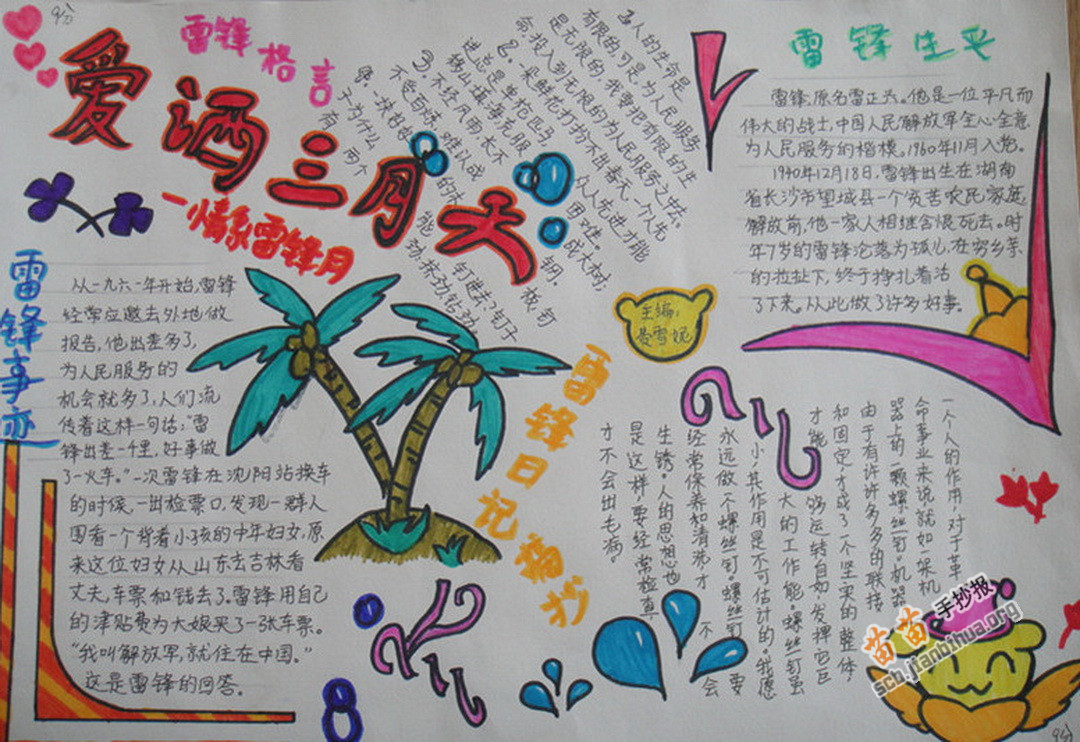 9分
爱洒三月天
一情系雷锋月
雷锋格言
1、人的生命是
有限的,可是,为人民服务
是无限的,我要把有限的生
命,投入到无限的为人民服务之中去。
2、一朵鲜花打扮不出春天,一个人先
进总是单枪匹马,众人先进才能
移山填海。
3、不经风雨,长不成大树;
不受百炼,难以成钢。
4、一块好好的木板,
子为什么能钉进去?
有两个劲:
雷锋生平
雷锋,原名雷正兴。他是一位平凡而
伟大的战士,中国人民解放军全心全意
为人民服务的楷模。1960年11月入党。
1940年12月18日,雷锋出生在湖南
省长沙市望城县一个贫苦农民家庭,
解放前,他一家人相继含恨死去。时
年7岁的雷锋沦落为孤儿,在穷乡亲
的拉扯下,终于挣扎着活
了下来。从此做了许多好事。
主编:
雪妮
雷锋事迹
从一九六一年开始,雷锋
经常应邀去外地做
报告,他出差多了,
为人民服务的
机会就多了,人们流
传着这样一句话:“雷
锋出差一千里,好事做
了一火车。”一次雷锋在沈阳站换车
的时候,一出检票口,发现一群人
围看一个背着小孩的中年妇女,原
来这位妇女从山东去吉林看
丈夫,车票和钱丢了。雷锋用自己
的津贴费为大娘买了一张车票。
“我叫解放军,就住在中国。”
这是雷锋的回答。
雷锋日记摘抄
一个人的作用,对于革
命事业来说,就如一架机
器上的一颗螺丝钉。机器
由于有许许多多的联接
和固定,才成了一个坚实的整体,
才能够运转自如,发挥它巨
大的工作能。螺丝钉虽
小,其作用是不可估计的。我愿
永远做一个螺丝钉。螺丝钉要
经常保养和清洗,才不会
生锈。人的思想也
是这样,要经常检查,
才不会出毛病。
苗苗手抄报
sch.jianbihua.org
9分